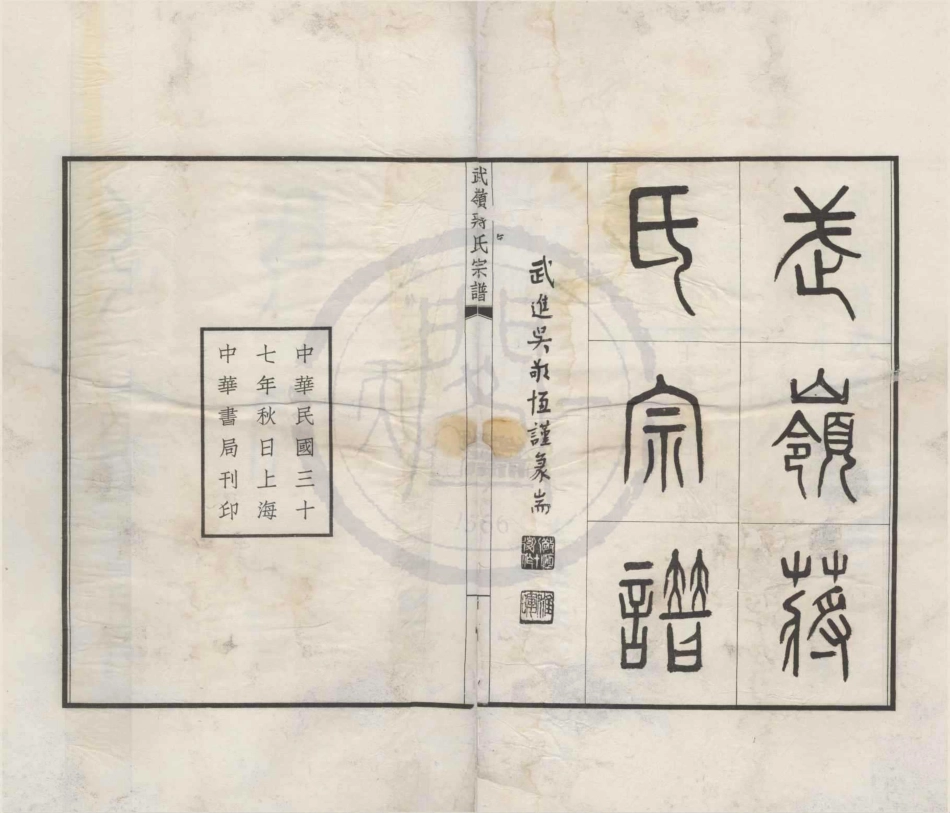 武嶺蔣
氏宗譜
武進吳敬恆謹篆耑
武嶺蔣氏宗譜
中華民國三十
七年秋日上海
中華書局刊印
1866